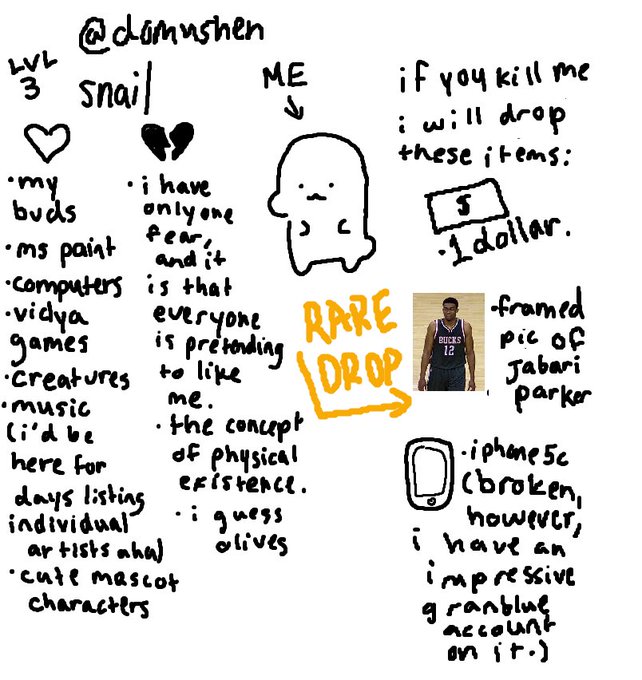 @domushen
LVL
3
snail
·my
buds
·ms paint
·computers
·vidya
games
·creatures
·music
(i'd be
here for
days listing
individual
artists aha)
·cute mascot
characters
·i have
only one
fear,
and it
is that
everyone
is pretending
to like
me.
·the concept
of physical
existence.
·i guess
olives
ME
if you kill me
i will drop
these items:
$
·1 dollar.
RARE
DROP
BUCKS
12
·framed
pic of
jabari
parker
·iphone 5c
(broken,
however,
i have an
impressive
granblue
account
on it.)